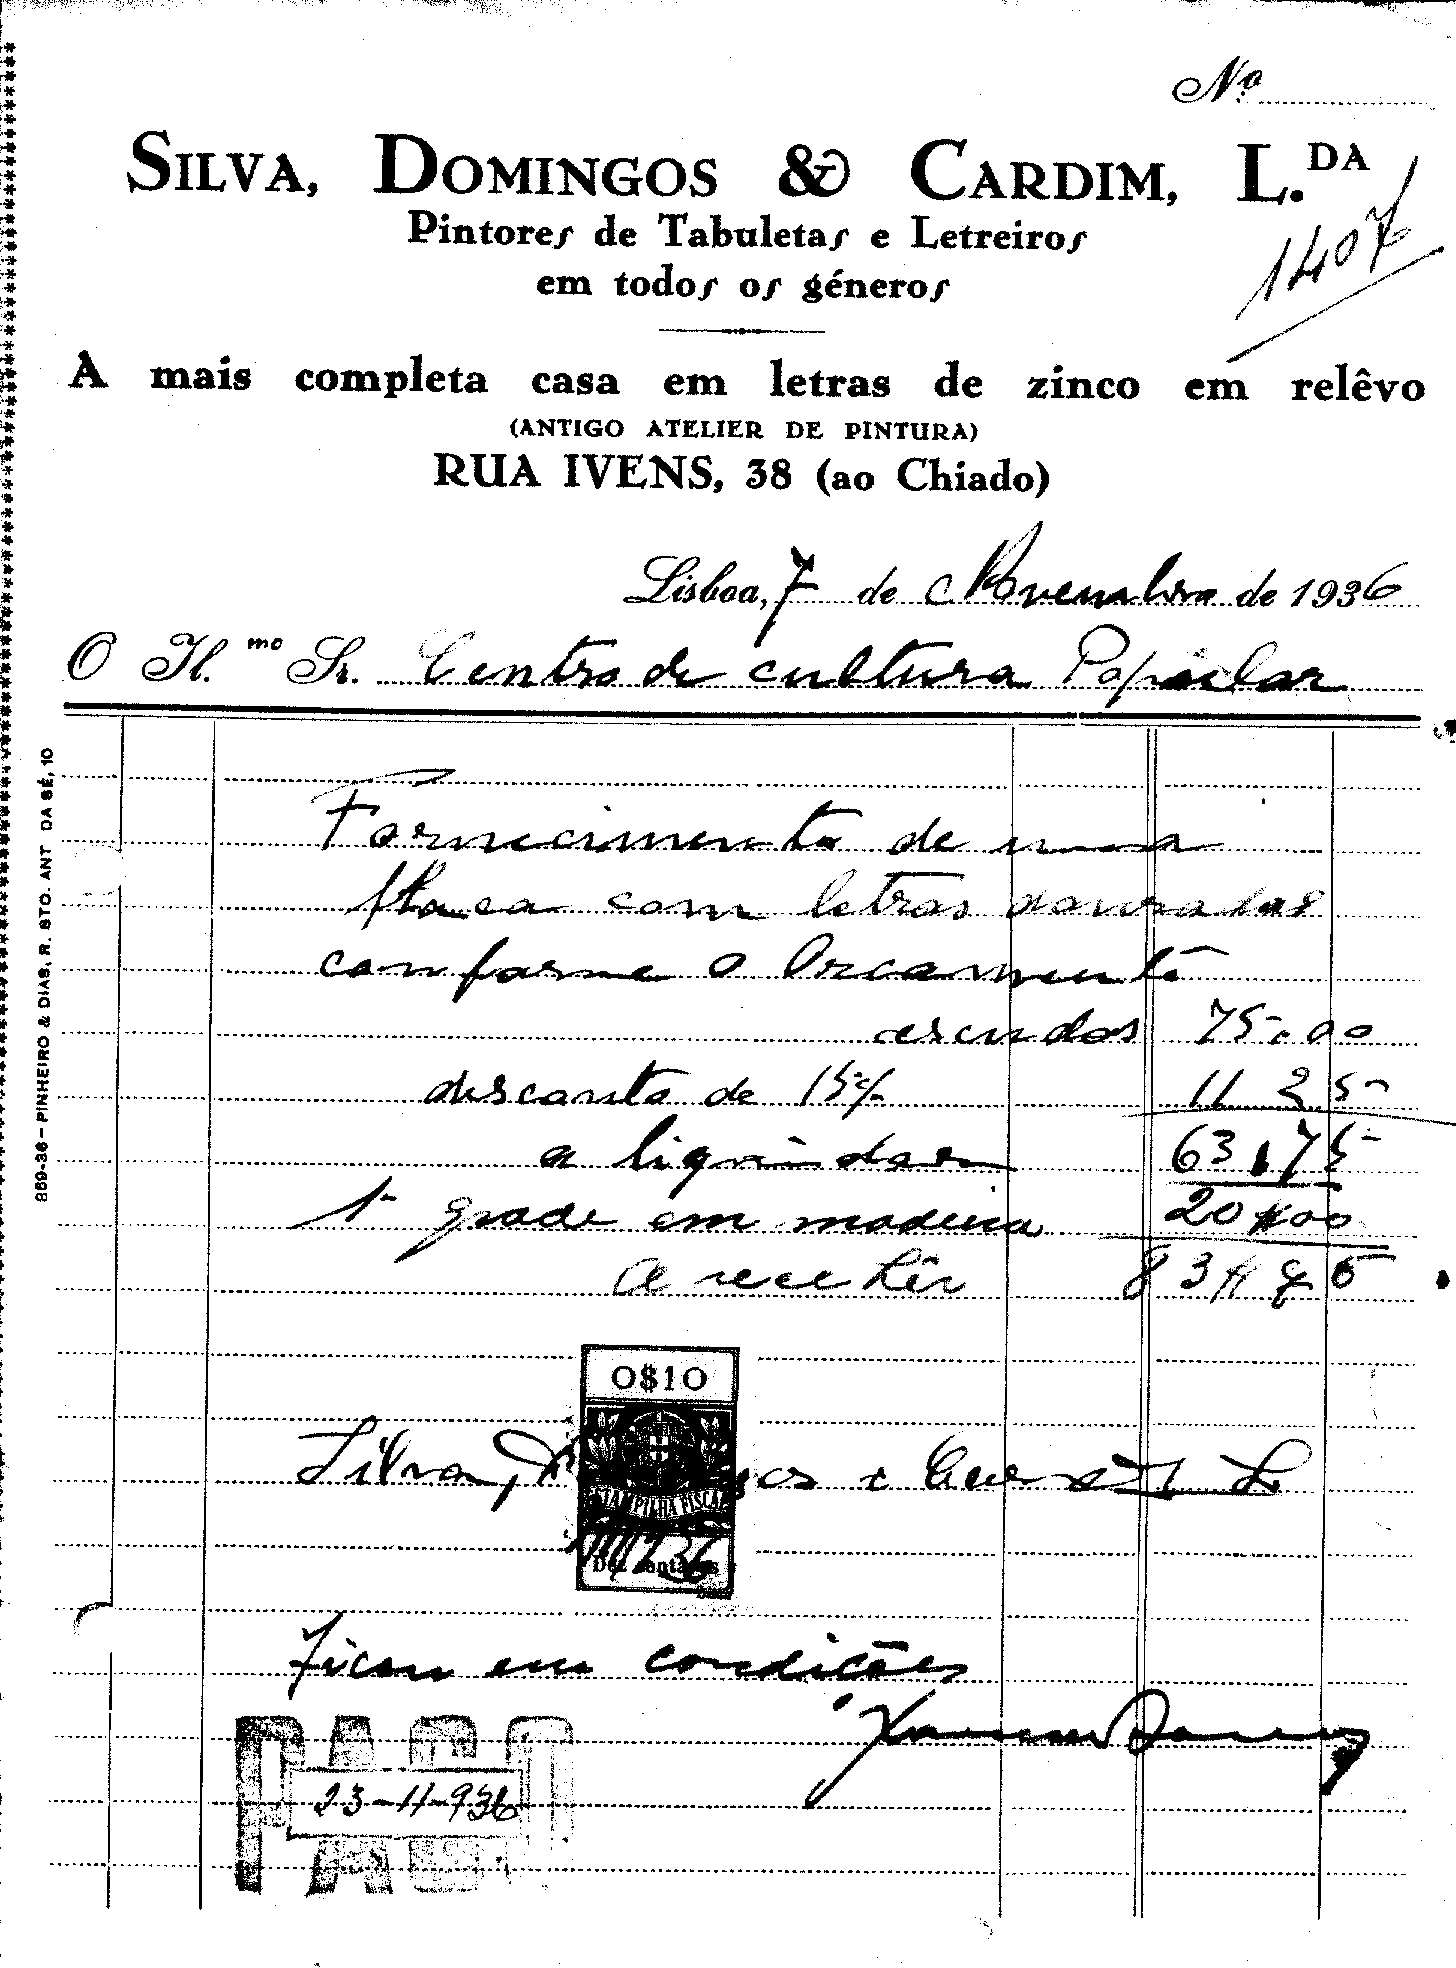 Nº
SILVA, DOMINGOS & CARDIM, L.DA
Pintores de Tabuletas e Letreiros
em todos os géneros
1407
A mais completa casa em letras de zinco em relêvo
(ANTIGO ATELIER DE PINTURA)
RUA IVENS, 38 (ao Chiado)
Lisboa, 7 de Novembro de 1936
O Il.mo Sr. Centro de cultura Popular
869-36 – PINHEIRO & DIAS, R. STO. ANT DA SÉ, 10
Fornecimento de uma
placa com letras douradas
conforme o Orcamento
escudos 75.00
desconto de 15% 11 25
a liquidar 63.75
1 grade em madeira 20$00
A recebêr 83$75
0$10
Silva, D os e L
ESTAMPILHA FISCAL
Dez centavos
Ficou em condições
PAGO
23-11-936